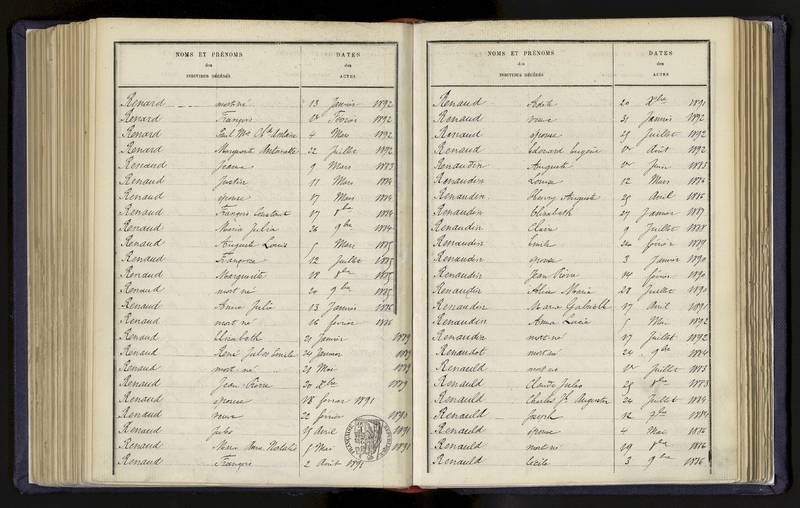 NOMS ET PRÉNOMS DATES
des des
INDIVIDUS DÉCÉDÉS ACTES
Renard mort né 13 Janvier 1892
Renard François Février 1892
Renard Mai 1892
Renard Marguerite Antoinette 22 Juillet 1892
Renaud Jeanne 9 Mars 1883
Renaud Justin 11 Mars 1884
Renaud épouse 17 Mars 1884
Renaud François Constant 17 8bre 1884
Renaud Maria Julia 26 9bre 1884
Renaud Auguste Louis 5 Mars 1885
Renaud Françoise 12 Juillet 1885
Renaud Marguerite 18 8bre 1885
Renaud mort né 20 9bre 1885
Renaud Anna Julie 13 Janvier 1886
Renaud mort né 16 février 1886
Renaud Elisabeth 21 Janvier 1889
Renaud René Jules Emile 24 Janvier 1889
Renaud mort né 21 Mai 1889
Renaud Jean-Pierre 20 Xbre 1889
Renaud épouse 18 février 1891
Renaud veuve 22 février 1891
Renaud Jules 15 avril 1891
Renaud Maria Anne 5 Mai 1891
Renaud François 2 Août 1891
NOMS ET PRÉNOMS DATES
des des
INDIVIDUS DÉCÉDÉS ACTES
Renaud Adèle 20 Xbre 1891
Renaud veuve 31 Janvier 1892
Renaud épouse 29 Juillet 1892
Renaud Edouard Eugène août 1892
Renaudin Auguste Juin 1883
Renaudin Louise 12 Mars 1886
Renaudin Henry Auguste 25 Avril 1886
Renaudin Elisabeth 27 Janvier 1887
Renaudin Claire 9 Juillet 1888
Renaudin Emile 20 février 1889
Renaudin épouse 3 Janvier 1890
Renaudin Jean Pierre 14 février 1890
Renaudin Alice Maria 28 Juillet 1890
Renaudin Maria Gabrielle 17 Avril 1891
Renaudin Anna Lucie 5 Mai 1892
Renaudin mort né 17 Juillet 1892
Renaudot mort né 24 9bre 1884
Renauld mort né Juillet 1883
Renauld Claude Jules 25 8bre 1883
Renauld Charles Auguste 24 Juillet 1884
Renauld Joseph 12 1884
Renauld épouse 4 Mai 1886
Renauld mort né 19 8bre 1886
Renauld Cécile 3 9bre 1886